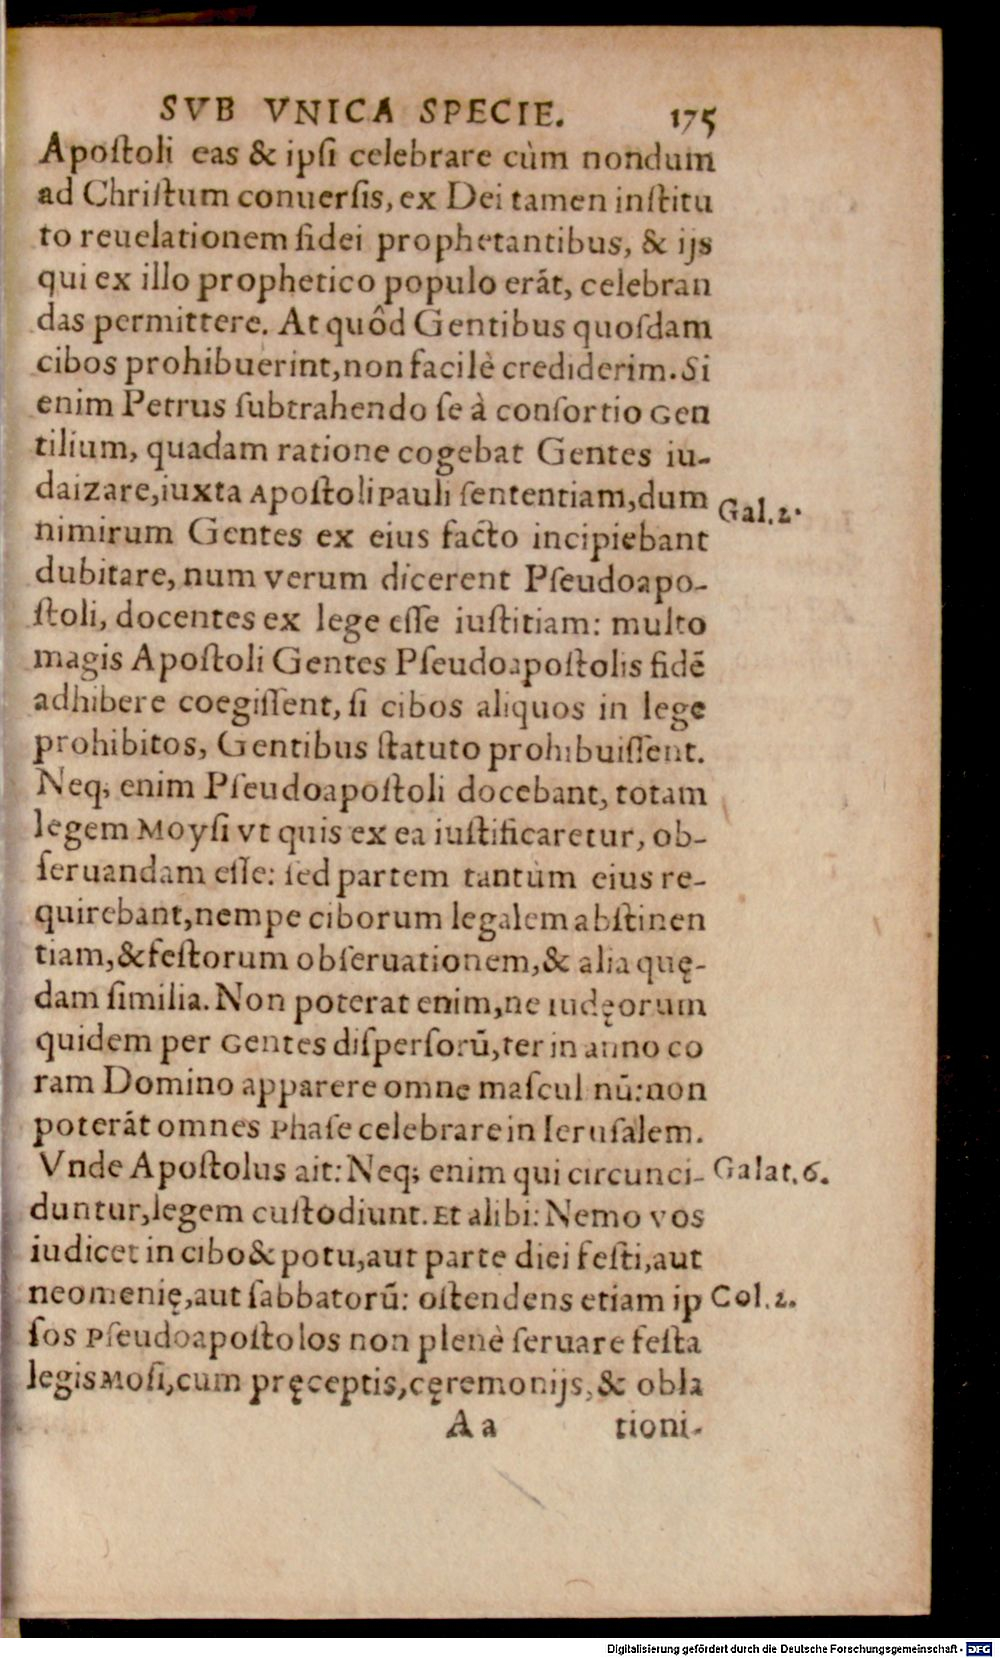 SVB VNICA SPECIE. 175
Apoſtoli eas & ipſi celebrare cùm nondum
ad Chriſtum conuerſis, ex Dei tamen inſtitu
to reuelationem fidei prophetantibus, & ijs
qui ex illo prophetico populo erãt, celebran
das permittere. At quôd Gentibus quoſdam
cibos prohibuerint, non facilè crediderim. Si
enim Petrus ſubtrahendo ſe à conſortio Gen
tilium, quadam ratione cogebat Gentes iu-
daizare, iuxta Apoſtoli Pauli ſententiam, dum
Gal. 2.
nimirum Gentes ex eius facto incipiebant
dubitare, num verum dicerent Pſeudoapo-
ſtoli, docentes ex lege eſſe iuſtitiam: multo
magis Apoſtoli Gentes Pſeudoapoſtolis fidẽ
adhibere coegiſſent, ſi cibos aliquos in lege
prohibitos, Gentibus ſtatuto prohibuiſſent.
Neq; enim Pſeudoapoſtoli docebant, totam
legem Moyſi vt quis ex ea iuſtificaretur, ob-
ſeruandam eſſe: ſed partem tantùm eius re-
quirebant, nempe ciborum legalem abſtinen
tiam, & feſtorum obſeruationem, & alia quę-
dam ſimilia. Non poterat enim, ne iudęorum
quidem per Gentes diſperſorũ, ter in anno co
ram Domino apparere omne maſcul nũ: non
poterãt omnes Phaſe celebrare in Ieruſalem.
Vnde Apoſtolus ait: Neq; enim qui circunci-
Galat. 6.
duntur, legem cuſtodiunt. Et alibi: Nemo vos
iudicet in cibo & potu, aut parte diei feſti, aut
neomenię, aut ſabbatorũ: oſtendens etiam ip
Col. 2.
ſos Pſeudoapoſtolos non plenè ſeruare feſta
legis Moſi, cum pręceptis, cęremonijs, & obla
Aa tioni-
Digitalisierung gefördert durch die Deutsche Forschungsgemeinschaft - DFG